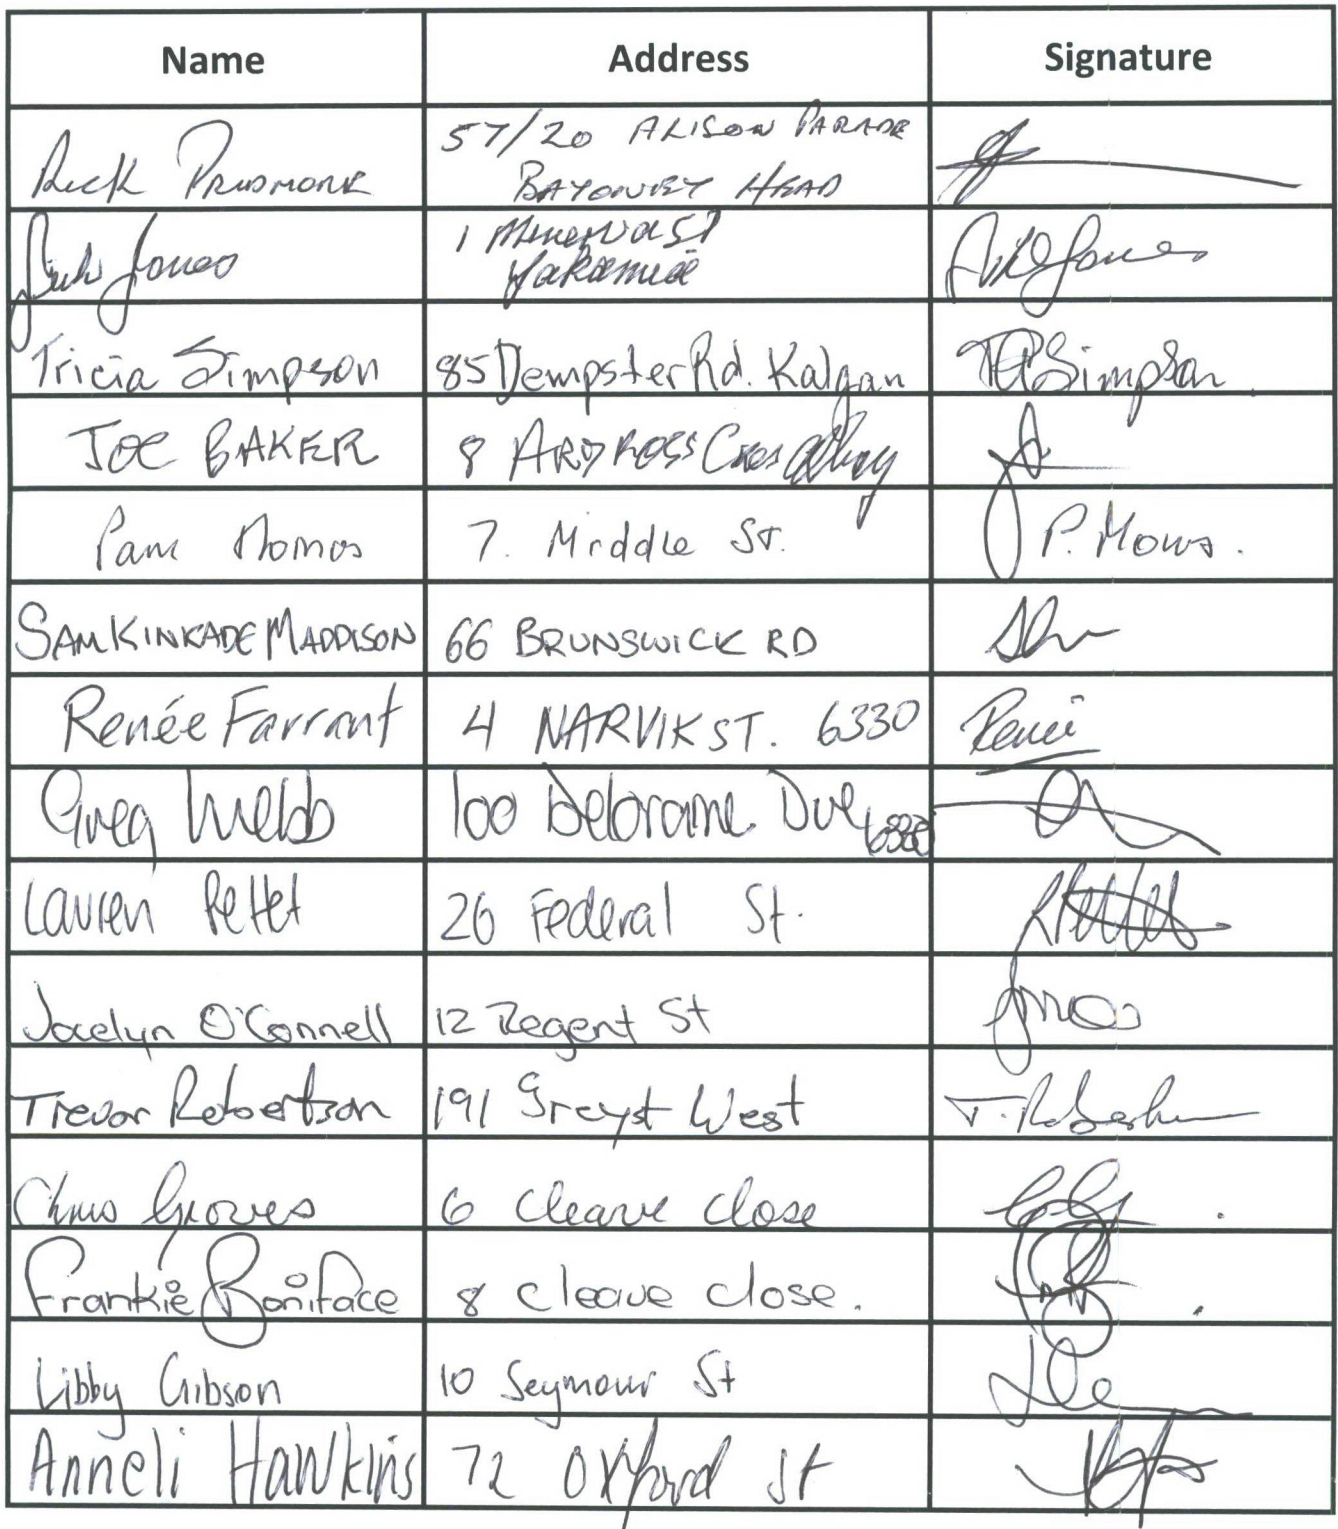 Name Address Signature
57/20 ALISON PARADE
Rick PRUDMORE BAYONET HEAD
1 Minerva St
Jones Yakamia Jones
Tricia Simpson 85 Dempster Rd. Kalgan TASimpson
JOE BAKER 8 ARDROSS Cres Albany
Pam 7. Middle St. P.
SAM KINKADE MADDISON 66 BRUNSWICK RD
Renée Farrant 4 NARVIK ST. 6330 Renée
Greg Webb 100 Deloraine Drve 6330
Lauren Pettet 26 Federal St. LPettet
Jocelyn O'Connell 12 Regent St
Trevor Robertson 191 Grey st West T. Robertson
Chris Groves 6 Cleave close
Frankie Boniface 8 cleave close.
Libby Gibson 10 Seymour St
Anneli Hawkins 72 Oxford St